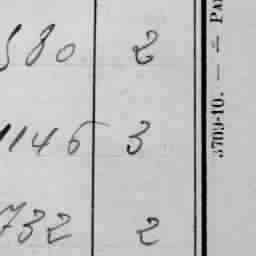 580 2
1146 3
732 2
3709-10. — — PA